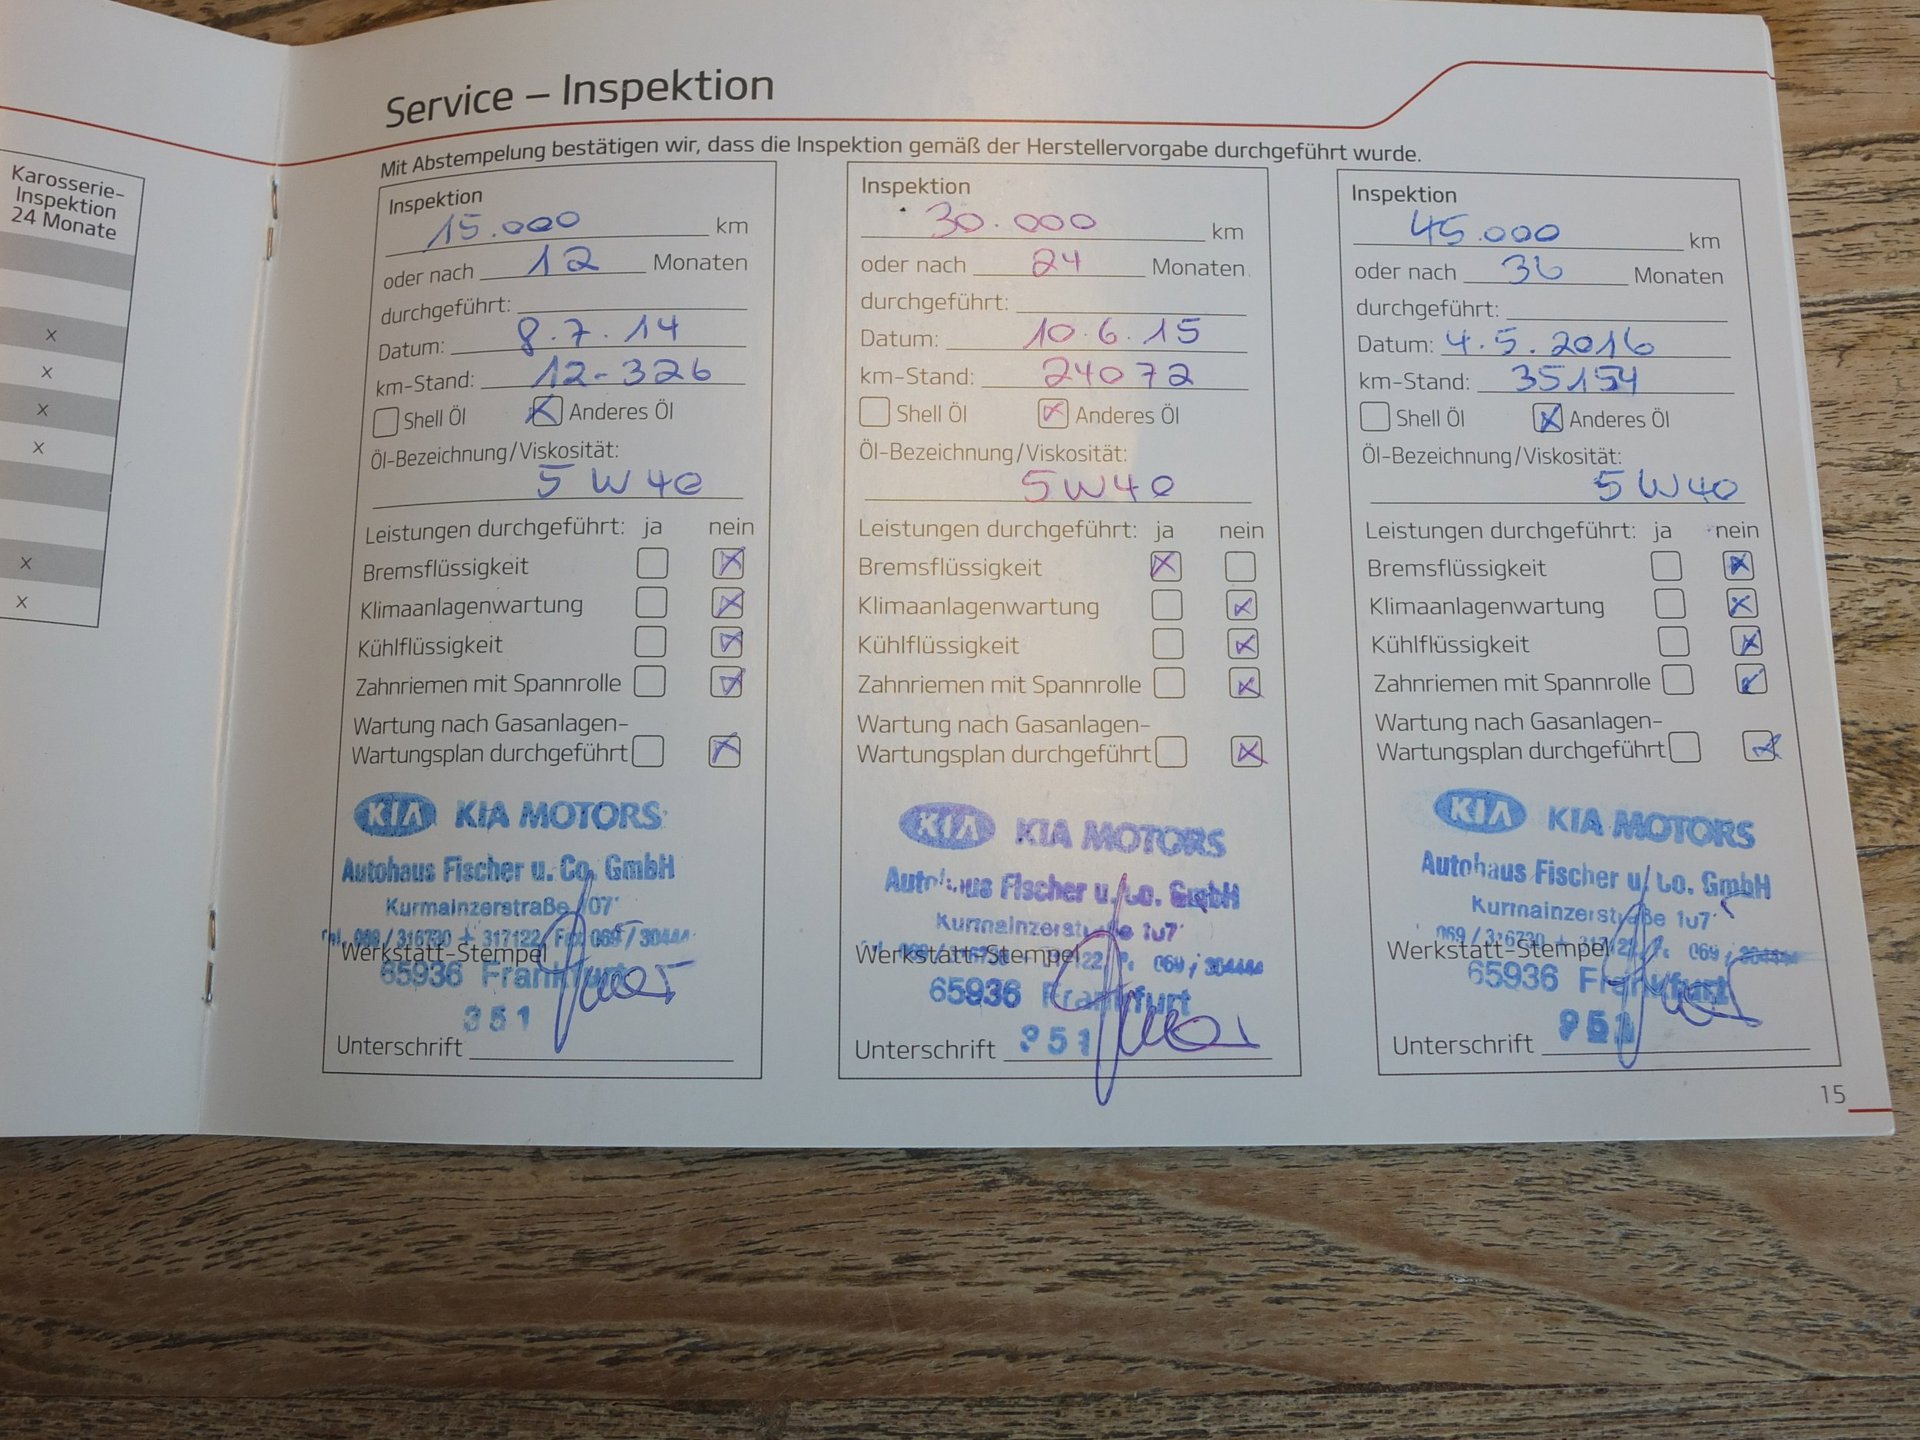 Karosserie-
Inspektion
24 Monate
x
x
x
x
x
x
Service – Inspektion
Mit Abstempelung bestätigen wir, dass die Inspektion gemäß der Herstellervorgabe durchgeführt wurde.
Inspektion
15.000 km
oder nach 12 Monaten
durchgeführt:
Datum: 8.7.14
km-Stand: 12-326
Shell Öl Anderes Öl
Öl-Bezeichnung/Viskosität:
5 W 40
Leistungen durchgeführt: ja nein
Bremsflüssigkeit
Klimaanlagenwartung
Kühlflüssigkeit
Zahnriemen mit Spannrolle
Wartung nach Gasanlagen-
Wartungsplan durchgeführt
KIA KIA MOTORS
Autohaus Fischer u. Co. GmbH
Kurmainzerstraße 107
Tel. 069 / 316730 + 317122 Fax 069 / 30444
Werkstatt-Stempel
65936 Frankfurt
351
Unterschrift
Inspektion
30.000 km
oder nach 24 Monaten
durchgeführt:
Datum: 10.6.15
km-Stand: 24072
Shell Öl Anderes Öl
Öl-Bezeichnung/Viskosität:
5W40
Leistungen durchgeführt: ja nein
Bremsflüssigkeit
Klimaanlagenwartung
Kühlflüssigkeit
Zahnriemen mit Spannrolle
Wartung nach Gasanlagen-
Wartungsplan durchgeführt
KIA KIA MOTORS
Autohaus Fischer u. Co. GmbH
Kurmainzerstraße 107
Werkstatt-Stempel
65936 Frankfurt
351
Unterschrift
Inspektion
45.000 km
oder nach 36 Monaten
durchgeführt:
Datum: 4.5.2016
km-Stand: 35154
Shell Öl Anderes Öl
Öl-Bezeichnung/Viskosität:
5 W 40
Leistungen durchgeführt: ja nein
Bremsflüssigkeit
Klimaanlagenwartung
Kühlflüssigkeit
Zahnriemen mit Spannrolle
Wartung nach Gasanlagen-
Wartungsplan durchgeführt
KIA KIA MOTORS
Autohaus Fischer u. Co. GmbH
Kurmainzerstraße 107
Werkstatt-Stempel
65936 Frankfurt
351
Unterschrift
15